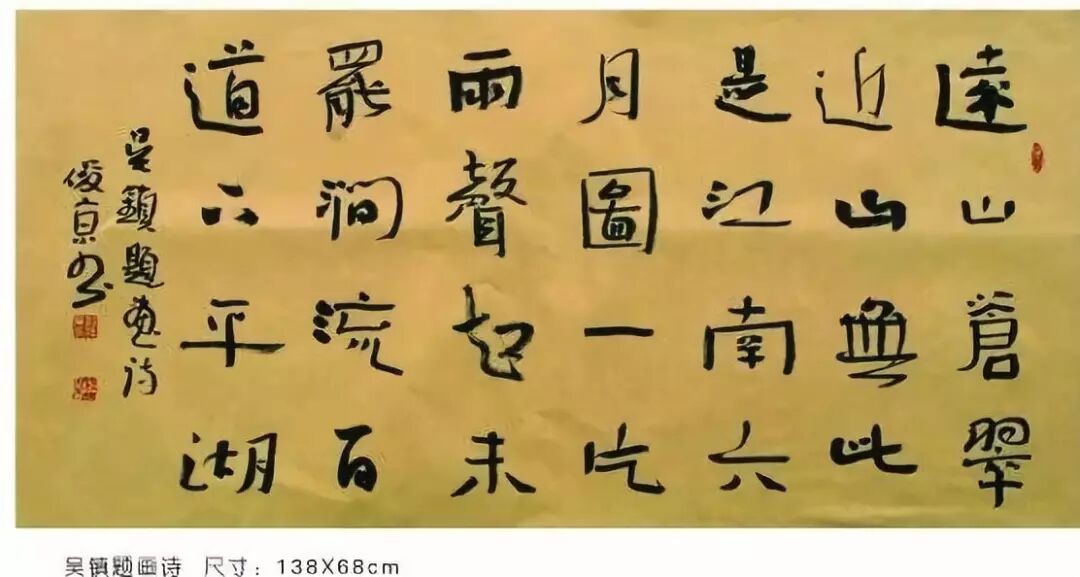 遠山蒼翠
近山無此
是江南六
月圖一片
雨聲起未
罷澗流百
道下平湖
吴鎮題畫诗
俊京书
吴镇题画诗 尺寸：138X68cm